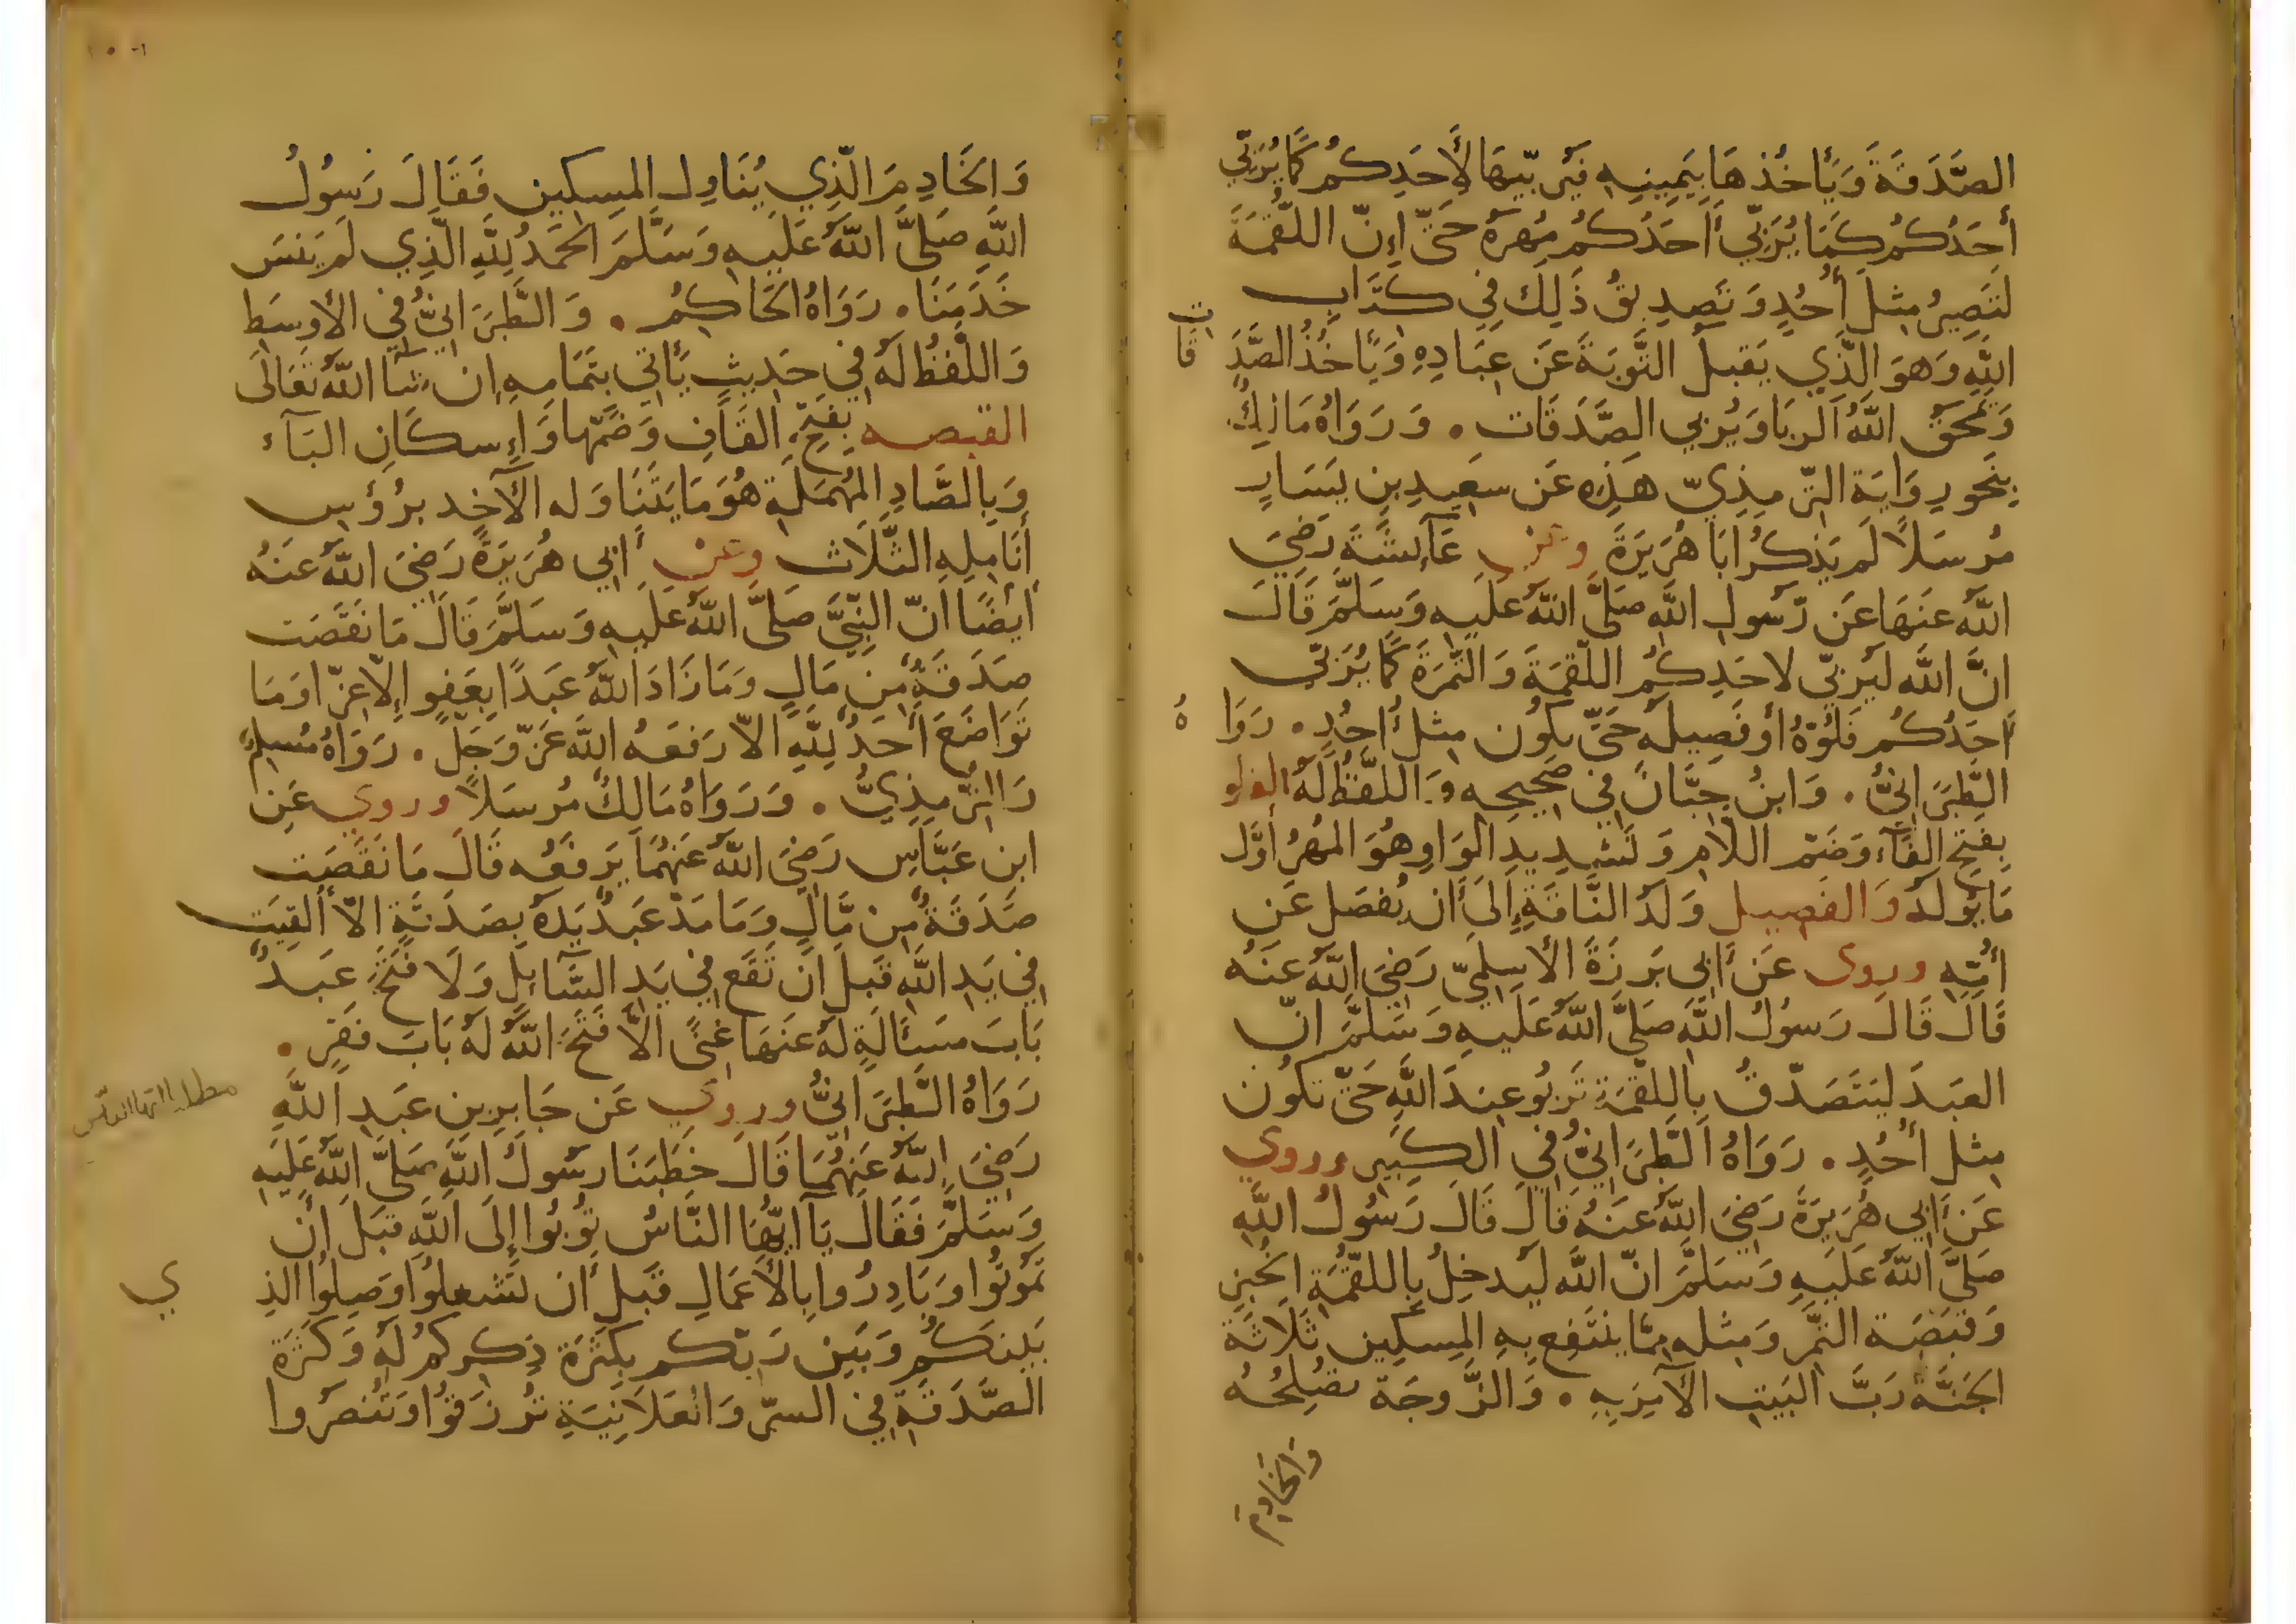 الصَّدَقَةَ وَيَأخُذهَا بِيَمِينِهِ فَيُرَبِّيهَا لِأَحَدِكُم كَمَا يُرَبِّي
أَحَدُكُم كَمَا يُرَبِّي أَحَدُكُم مُهرَهُ حَتَّى إِنّ اللُّقمَةَ
لَتَصِيرُ مِثلَ أُحُدٍ وَتَصدِيقُ ذَلِكَ فِي كِتَابِ
اللَّهِ وَهوَ الَّذِي يَقبلُ التَّوبَةَ عَن عِبَادِهِ وَيَأخُذُ الصَّدَقَاتِ
وَيَمحَقُ اللَّهُ الرِبَا وَيُربي الصَّدَقَاتِ . وَرَوَاهُ مَالِكٌ
بِنَحوِ رِوَايَةِ التِّرمِذِيّ هَذِهِ عَن سعِيدِ بنِ يَسَارٍ
مُرسَلًا لَم يَذكُر ابَا هُرَيرَةَ وعن عَآئِشَةَ رَضِيَ
اللَّهُ عَنهَا عَن رّسُولِ اللَّهِ صَلَّى اللَّهُ عَلَيهِ وَسَلَّمَ قَالَ
انَّ اللَّه لَيُربّي لاحَدِكُمُ اللُّقمَةَ وَالتَّمرَةَ كَمَا يُرَبّي
أَحَدُكُم فَلُوَّهُ أَو فَصِيلَهُ حَتَّى يكُون مِثلَ أُحُدٍ . رَوَاهُ
الطَّبَرَانِيُّ . وَابنُ حِبَّانَ فِي صَحِيحِهِ وَاللَّفظُ لَهُ الفلو
بِفَتحِ الفَآءِ وَضَمّ اللَّامِ وَتَشدِيدِ الوَاوِ هُوَ المُهرُ أَوَّل
مَا يُولَدُ وَالفصيل وَلَدُ النَّاقَةِ إِلَى أَن يُفصَل عَن
أُمّهِ وروى عَن أَبِي بَرزَةَ الأَسلَمِيّ رَضِيَ اللَّهُ عَنهُ
قَالَ قَالَ رَسُولُ اللَّهِ صَلَّى اللَّهُ عَلَيهِ وَسَلَّمَ انّ
العَبدَ لَيَتَصَدّقُ بِاللُّقمَةِ تَربُو عِندَ اللَّهِ حَتّى تكُون
مِثل أُحُدٍ . رَوَاهُ الطَّبَرَانِيُّ فِي الكَبِيرِ وروي
عَن أَبِي هُرَيرَةَ رَضِيَ اللَّهُ عَنهُ قَالَ قَالَ رَسُولُ اللَّهِ
صَلَّى اللَّهُ عَلَيهِ وَسَلَّمَ انّ اللَّه لَيُدخِلُ بِاللُّقمَةِ الخُبزِ
وَقَبصَة التَّمرِ وَمِثلِهِ مِمَّا يَنتَفِع بِهِ المِسكِين ثَلَاثَةً
الجَنَّة رَبَّ البَيتِ الآمِرَ بِهِ . وَالزَّوجَة تصُلِحُهُ
وَالخَادِمَ
وَالخَادِمَ الَّذِي يُنَاوِل المِسكِين فَقَالَ رَسُولُ
اللَّهِ صَلَّى اللَّهُ عَلَيهِ وَسَلَّمَ الحَمدُ لِلَّهِ الَّذِي لَم يَنسَ
خَدَمَنَا . رَوَاهُ الحَاكِمُ . وَالطَّبَرَانِيُّ فِي الأَوسَطِ
وَاللَّفظُ لَهُ فِي حَدِيثٍ يَأتِي بِتَمَامِهِ إِن شَآ اللَّهُ تَعَالَى
القبصه بِفَتحِ القَافِ وَضَمّهَا وَإِسكَانِ البَآءِ
وَبِالصَّادِ المُهمَلَةِ هُوَ مَا يَتَنَاوَله الآخِذ بِرُؤُسِ
أَنَامِلِهِ الثَّلَاث وعن أَبِي هُرَيرَةَ رَضِيَ اللَّهُ عَنهُ
أَيضًا انّ النَّبِيَّ صَلَّى اللَّهُ عَلَيهِ وَسَلَّمَ قَالَ مَا نَقَصَت
صَدَقَةٌ مِن مَالٍ وَمَا زَادَ اللَّهُ عَبدًا بِعَفوٍ إِلَّا عِزّا وَمَا
تَوَاضَعَ أَحَدٌ لِلَّهِ الاّ رَفَعَهُ اللَّه عَزّ وَجَلَّ . رَوَاهُ مُسلِمٌ
وَالتِّرمِذِيُّ . وَرَوَاهُ مَالِكٌ مُرسَلًا وروي عَنِ
ابنِ عَبَّاسٍ رَضِيَ اللَّهُ عَنهُمَا يَرفَعُه قَالَ مَا نَقَصَت
صَدَقَةٌ مِن مَّالٍ وَمَا مَدّ عَبدٌ يَدَهُ بِصَدَقَةٍ الاّ أُلقِيَت
فِي يَدِ اللَّهِ قَبلَ ان تَقَع فِي يَدِ السَّآئِلِ وَلَا فَتَحَ عَبدٌ
بَابَ مَسئَالَةٍ لَهُ عَنهَا غِنًى الاّ فَتَحَ اللَّهُ لَهُ بَابَ فَقرٍ .
رَوَاهُ الطَّبَرَانِيُّ وروي عَن جَابِرِ بنِ عَبدِ اللَّهِ
رَضِيَ اللَّهُ عَنهُمَا قَالَ خَطَبَنَا رسُولُ اللَّهِ صَلَّى اللَّهُ عَلَيهِ
وَسَلَّمَ فَقَالَ يَآ ايُّهَا النَّاسُ تُوبُوا إِلَى اللَّهِ قَبلَ أَن
تَمُوتُوا وَبَادِرُوا بِالأَعمَالِ قَبلَ أَن تُشغلُوا وَصِلُوا الذِي
بَينَكُم وَبَينَ رَبّكم بِكَثرَةِ ذِكرِكمُ لَهُ وَكَثرَةِ
الصَّدَقَةِ فِي السرّ وَالعَلَانِيَةِ تُرزَقُوا وَتُنصَرُوا